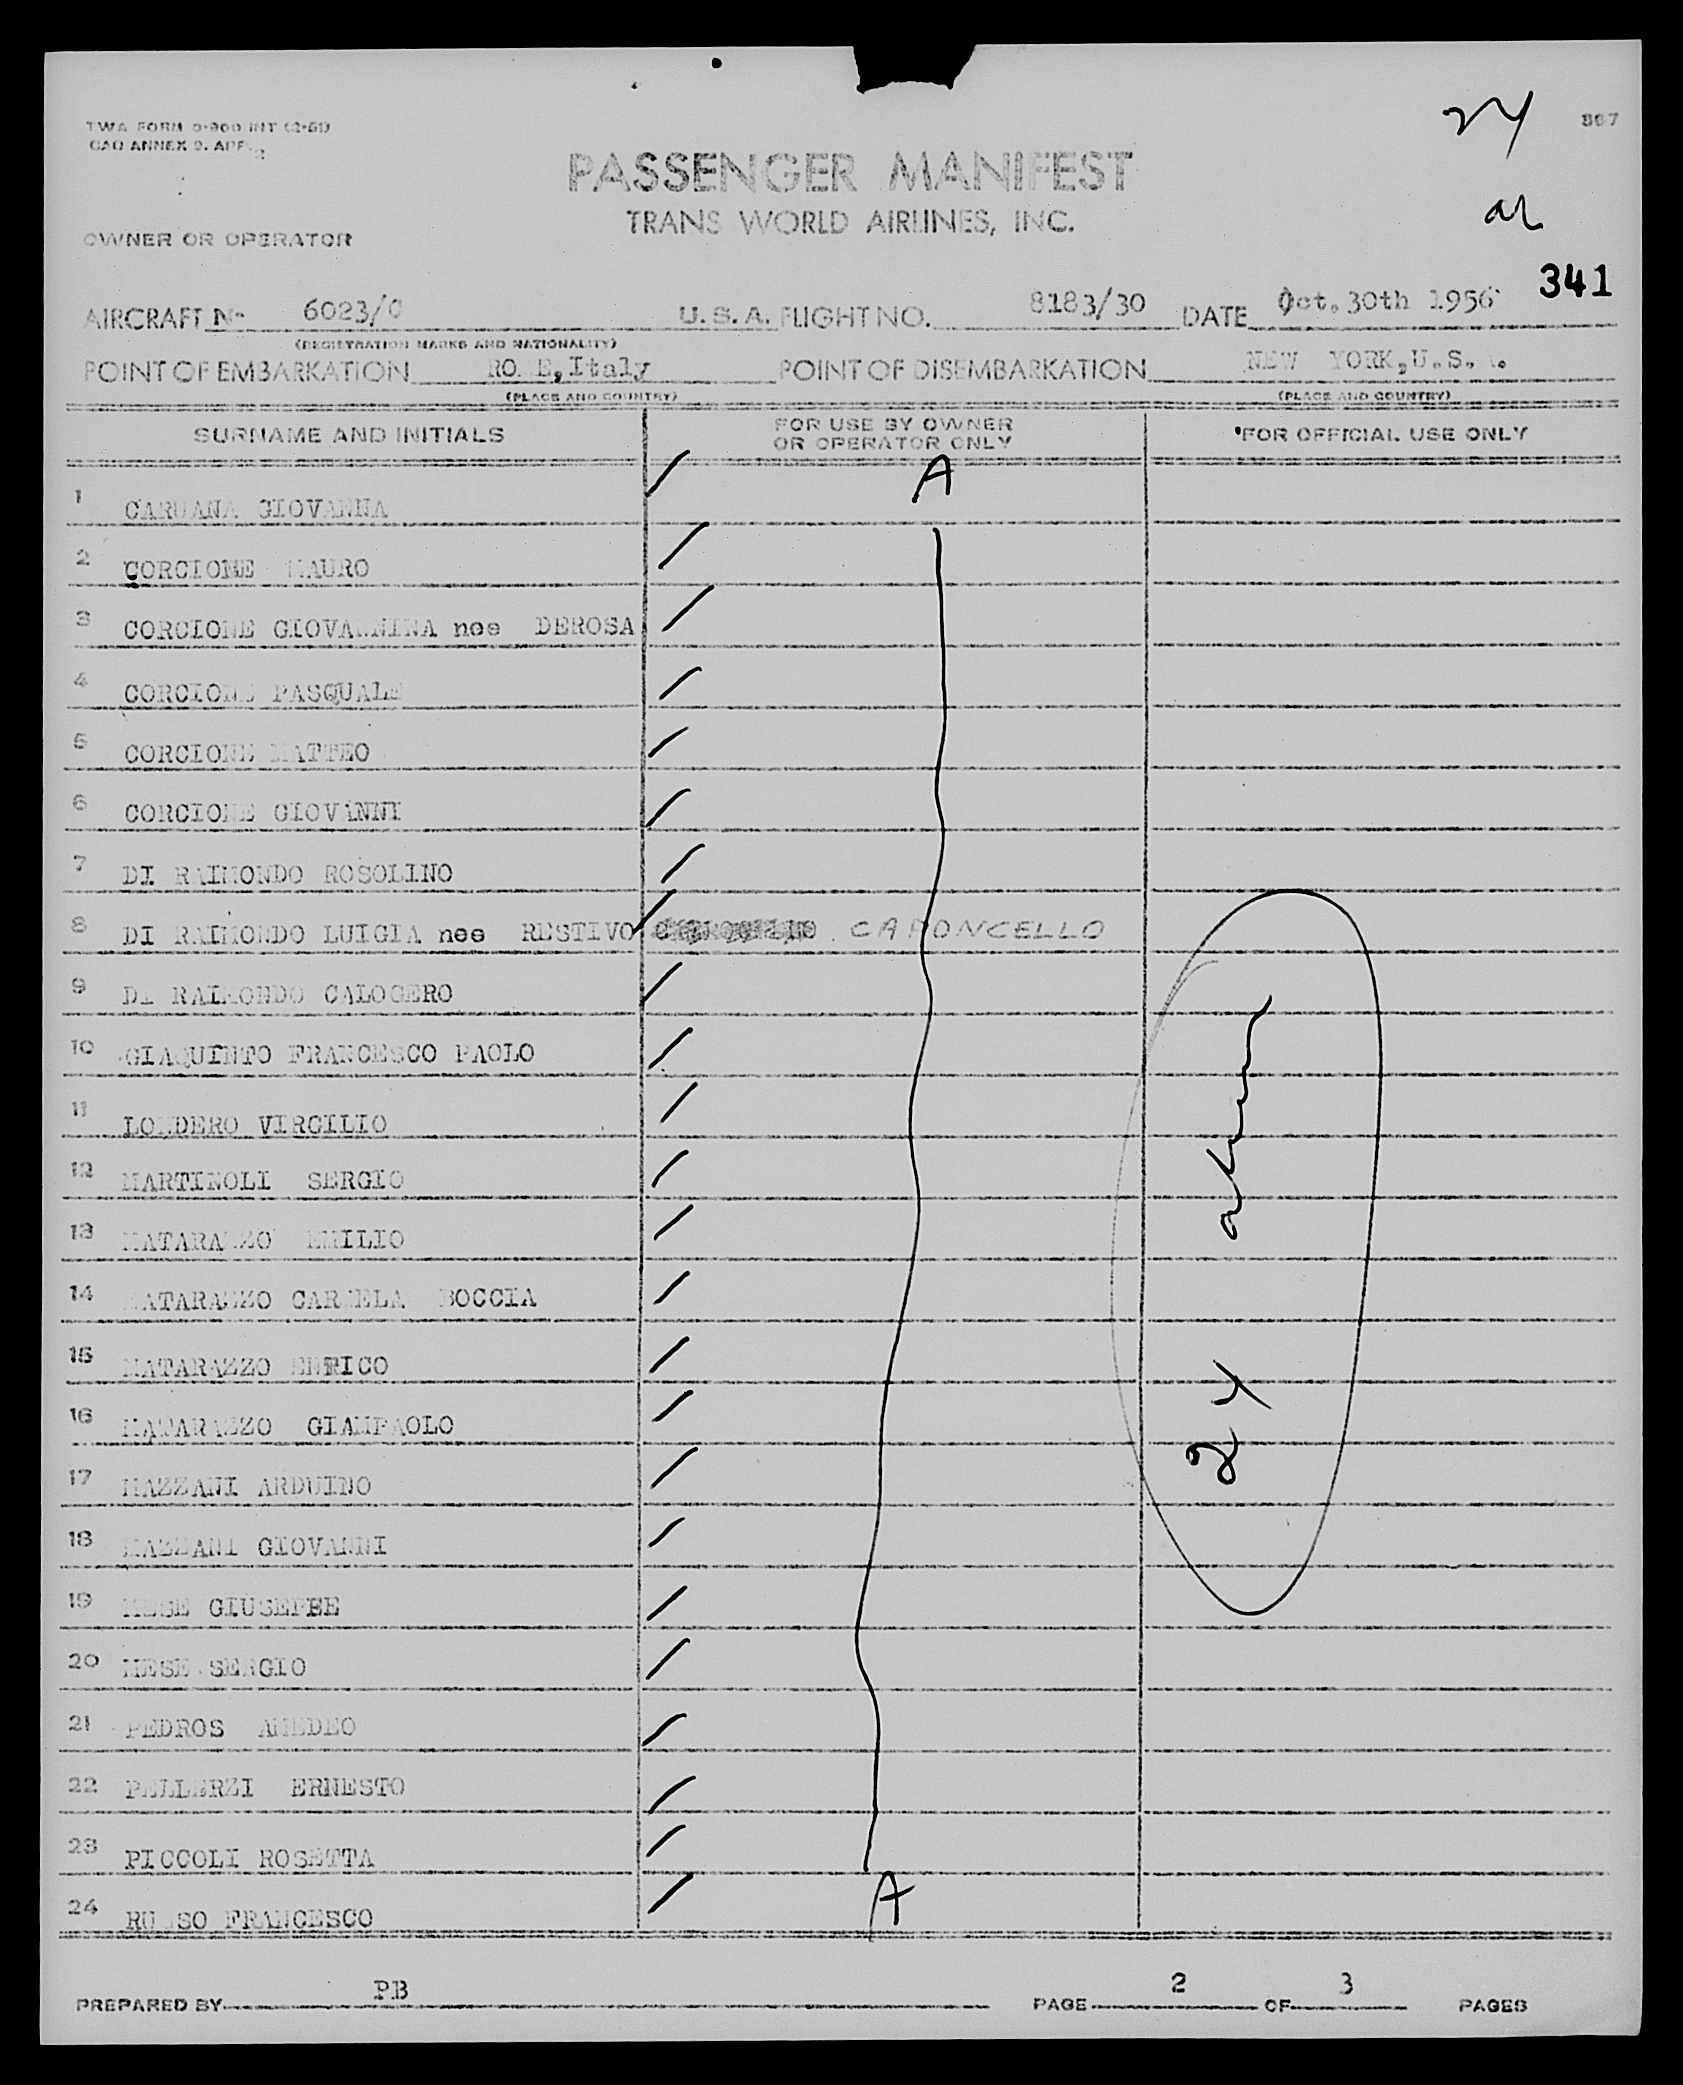 TWA FORM 0-900 INT (2-51)
CAO ANNEX 9. APP. 2
24
867
PASSENGER MANIFEST
TRANS WORLD AIRLINES, INC.
OWNER OR OPERATOR
341
AIRCRAFT No 6023/C U.S.A. FLIGHT NO. 8183/30 DATE Oct. 30th 1956
(REGISTRATION MARKS AND NATIONALITY)
POINT OF EMBARKATION ROME, Italy POINT OF DISEMBARKATION NEW YORK, U.S.A.
(PLACE AND COUNTRY) (PLACE AND COUNTRY)
SURNAME AND INITIALS FOR USE BY OWNER OR OPERATOR ONLY FOR OFFICIAL USE ONLY
A
1 CARUANA GIOVANNA
2 CORCIONE MAURO
3 CORCIONE GIOVANNINA nee DEROSA
4 CORCIONE PASQUALE
5 CORCIONE MATTEO
6 CORCIONE GIOVANNI
7 DI RAIMONDO ROSOLINO
8 DI RAIMONDO LUIGIA nee RESTIVO CAPONCELLO
9 DI RAIMONDO CALOGERO
10 GIAQUINTO FRANCESCO PAOLO
11 LONDERO VIRGILIO
12 MARTINOLI SERGIO
13 MATARAZZO EMILIO
14 MATARAZZO CARMELA BOCCIA
15 MATARAZZO ENRICO
16 MATARAZZO GIAMPAOLO
24
17 MAZZANI ARDUINO
18 MAZZANI GIOVANNI
19 MESE GIUSEPPE
20 MESE SERGIO
21 PEDROS AMEDEO
22 PELLERZI ERNESTO
23 PICCOLI ROSETTA
24 RUSSO FRANCESCO
A
PREPARED BY PB PAGE 2 OF 3 PAGES